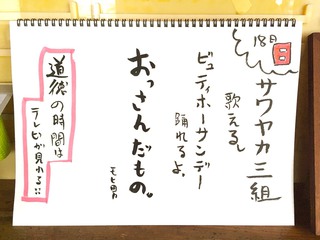 18日
日
サワヤカ三組
歌えるし
ビューティホーサンデー
踊れるよ。
おっさんだもの。
道徳の時間は
テレビが見れる::